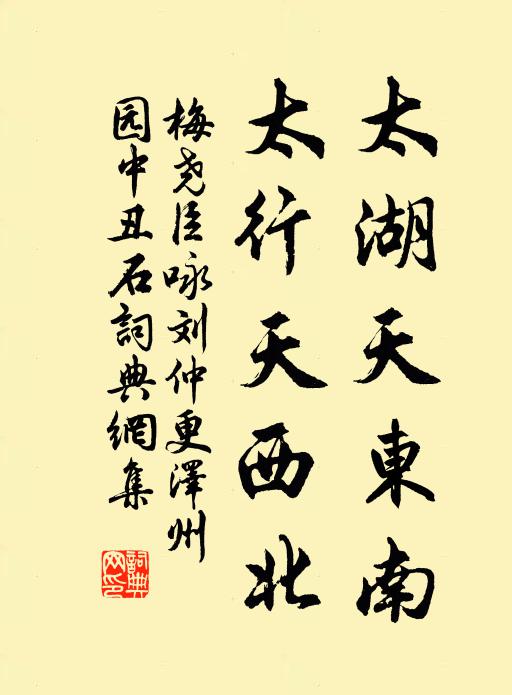 太湖天東南
太行天西北
梅尧臣咏刘仲更澤州
园中丑石詞典網集